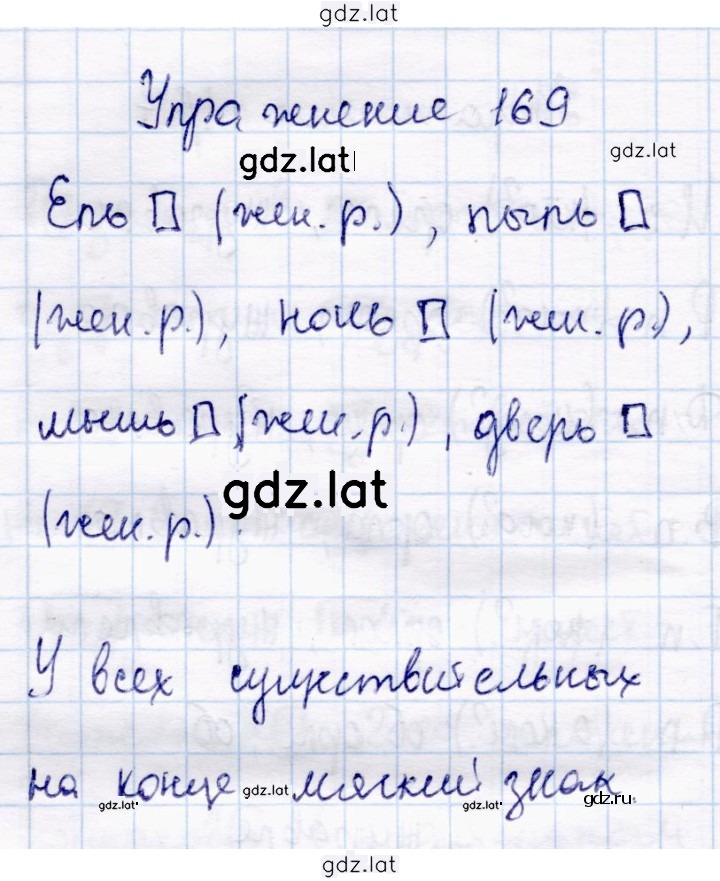 gdz.lat
Упражнение 169
gdz.lat gdz.lat
Ель □ (жен. р.), пыль □
(жен. р.), ночь □ (жен. р.),
мышь □ (жен. р.), дверь □
gdz.lat
(жен. р.).
У всех существительных
на конце мягкий знак
gdz.lat gdz.lat gdz.lat gdz.ru
gdz.lat